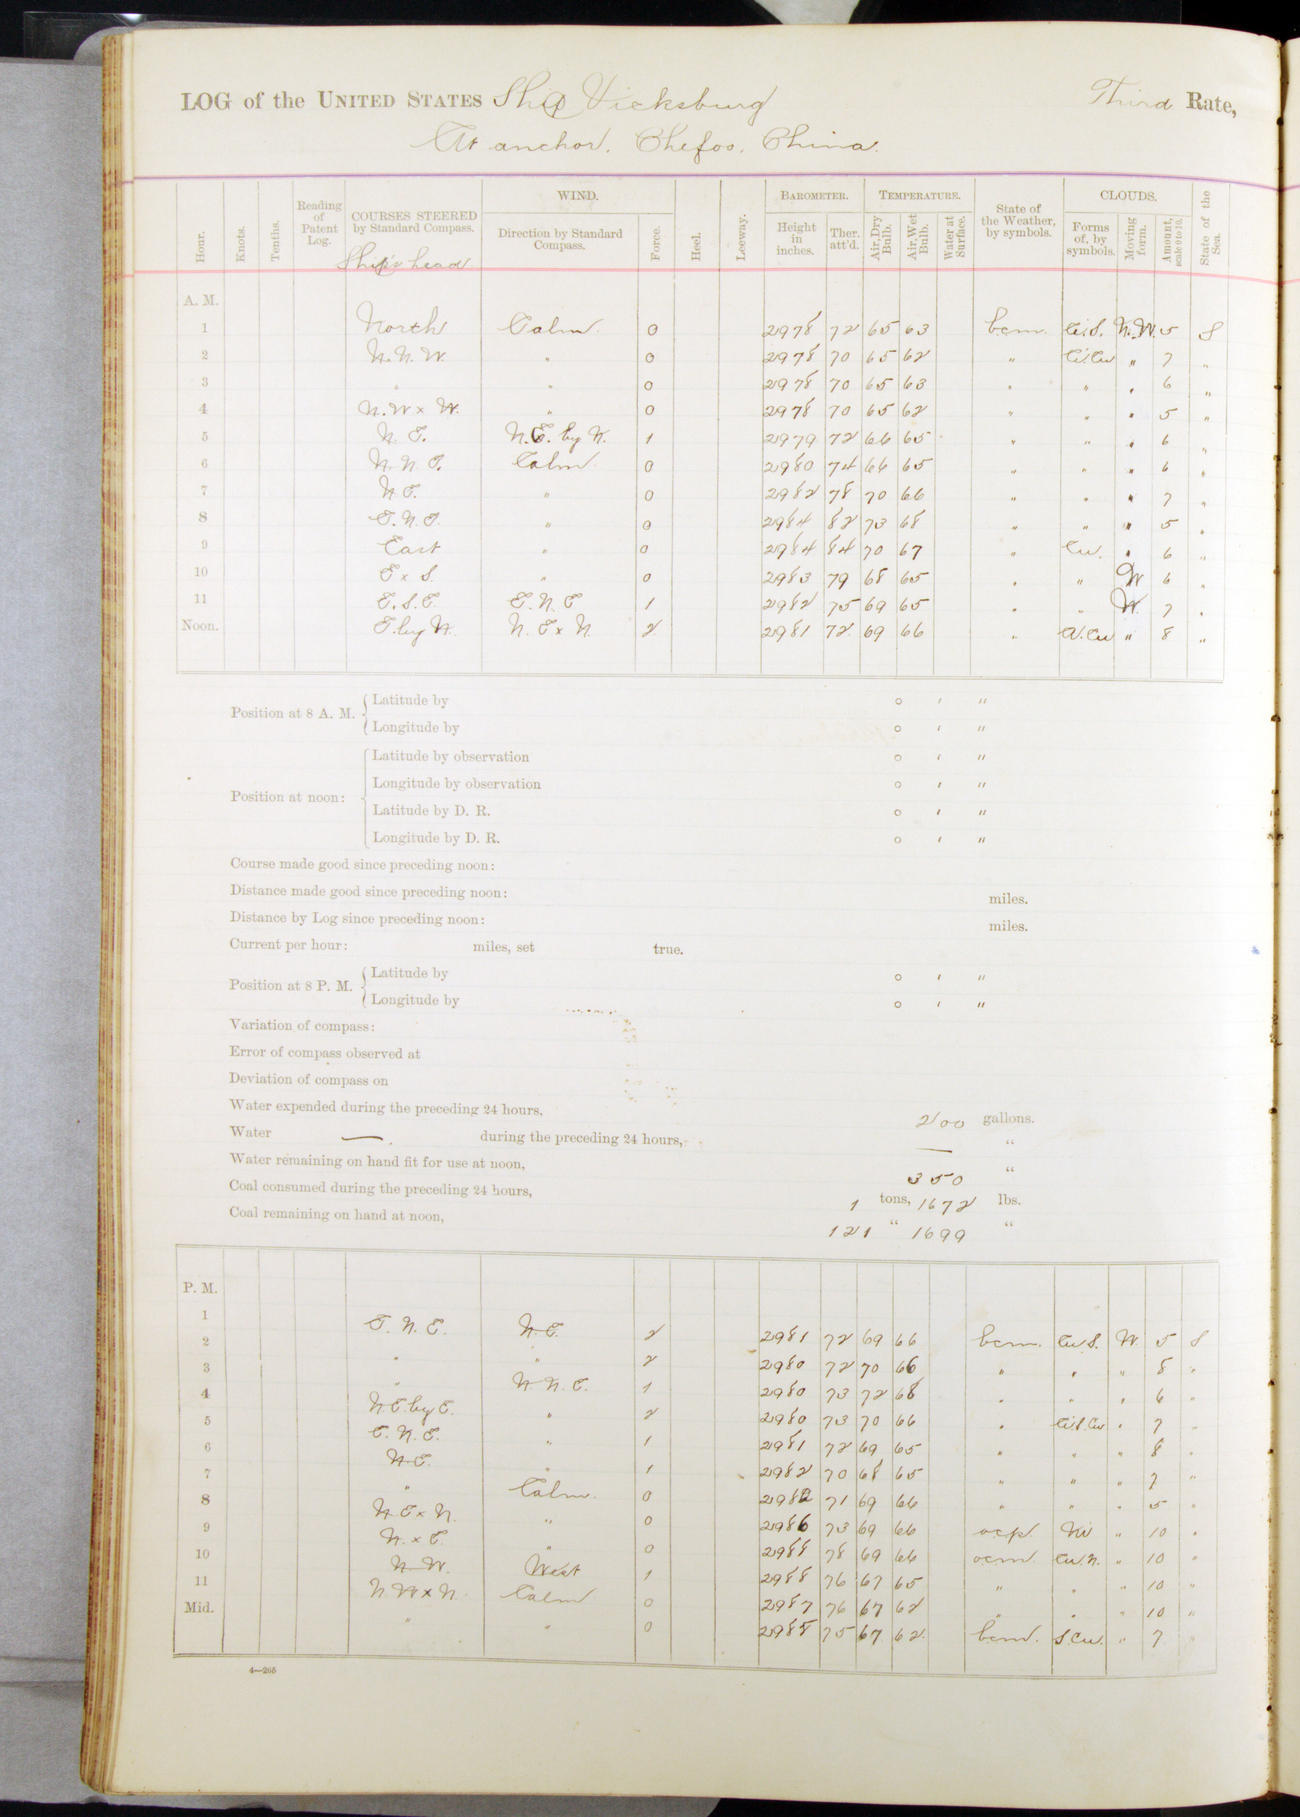 LOG of the UNITED STATES Ship Vicksburg Third Rate,
At anchor. Chefoo. China.
Hour. Knots. Tenths. Reading of Patent Log. COURSES STEERED by Standard Compass. WIND. Direction by Standard Compass. Force. Heel. Leeway. BAROMETER. Height in inches. Ther. att'd. TEMPERATURE. Air, Dry Bulb. Air, Wet Bulb. Water at Surface. State of the Weather, by symbols. CLOUDS. Forms of, by symbols. Moving form. Amount, scale 0 to 10. State of the Sea.
Ship's head
A. M.
1 North Calm 0 2978 72 65 63 bcm. Ci.S. N.W. 5 S
2 N.N.W. " 0 2978 70 65 62 " Ci.Cu " 7 "
3 " " 0 2978 70 65 63 " " " 6 "
4 N.W x W. " 0 2978 70 65 62 " " " 5 "
5 N. E. N.E. by N. 1 2979 72 66 65 " " " 6 "
6 N. N. E. Calm 0 2980 74 66 65 " " " 6 "
7 N E. " 0 2982 78 70 66 " " " 7 "
8 E. N. E. " 0 2984 82 73 68 " " " 5 "
9 East " 0 2984 84 70 67 " Cu. " 6 "
10 E x S. " 0 2983 79 68 65 " " W 6 "
11 E. S. E. E. N. E 1 2982 75 69 65 " " W. 7 "
Noon. E. by N. N. E x N. 2 2981 72 69 66 " A.Cu " 8 "
Position at 8 A. M. Latitude by ° ' "
Longitude by ° ' "
Position at noon: Latitude by observation ° ' "
Longitude by observation ° ' "
Latitude by D. R. ° ' "
Longitude by D. R. ° ' "
Course made good since preceding noon:
Distance made good since preceding noon: miles.
Distance by Log since preceding noon: miles.
Current per hour: miles, set true.
Position at 8 P. M. Latitude by ° ' "
Longitude by ° ' "
Variation of compass:
Error of compass observed at
Deviation of compass on
Water expended during the preceding 24 hours, 200 gallons.
Water — during the preceding 24 hours, — "
Water remaining on hand fit for use at noon, 350 "
Coal consumed during the preceding 24 hours, 1 tons, 1672 lbs.
Coal remaining on hand at noon, 121 " 1699 "
P. M.
1 E. N. E. N. E. 2 2981 72 69 66 bcm. Cu.S. W. 5 S
2 " " 2 2980 72 70 66 " " " 8 "
3 " N. N. E. 1 2980 73 72 68 " " " 6 "
4 N E. by E. " 2 2980 73 70 66 " Ci.S.Cu " 7 "
5 E. N. E. " 1 2981 72 69 65 " " " 8 "
6 N. E. " 1 2982 70 68 65 " " " 7 "
7 " Calm. 0 2982 71 69 66 " " " 5 "
8 N. E x N. " 0 2986 73 69 66 ocp. Ni " 10 "
9 N. x E. " 0 2988 78 69 66 ocm. Cu.N. " 10 "
10 N. W. West 1 2988 76 67 65 " " " 10 "
11 N. W x N. Calm 0 2987 76 67 62 " " " 10 "
Mid. " " 0 2985 75 67 62 bcm. S.Cu. " 7 "
4—265